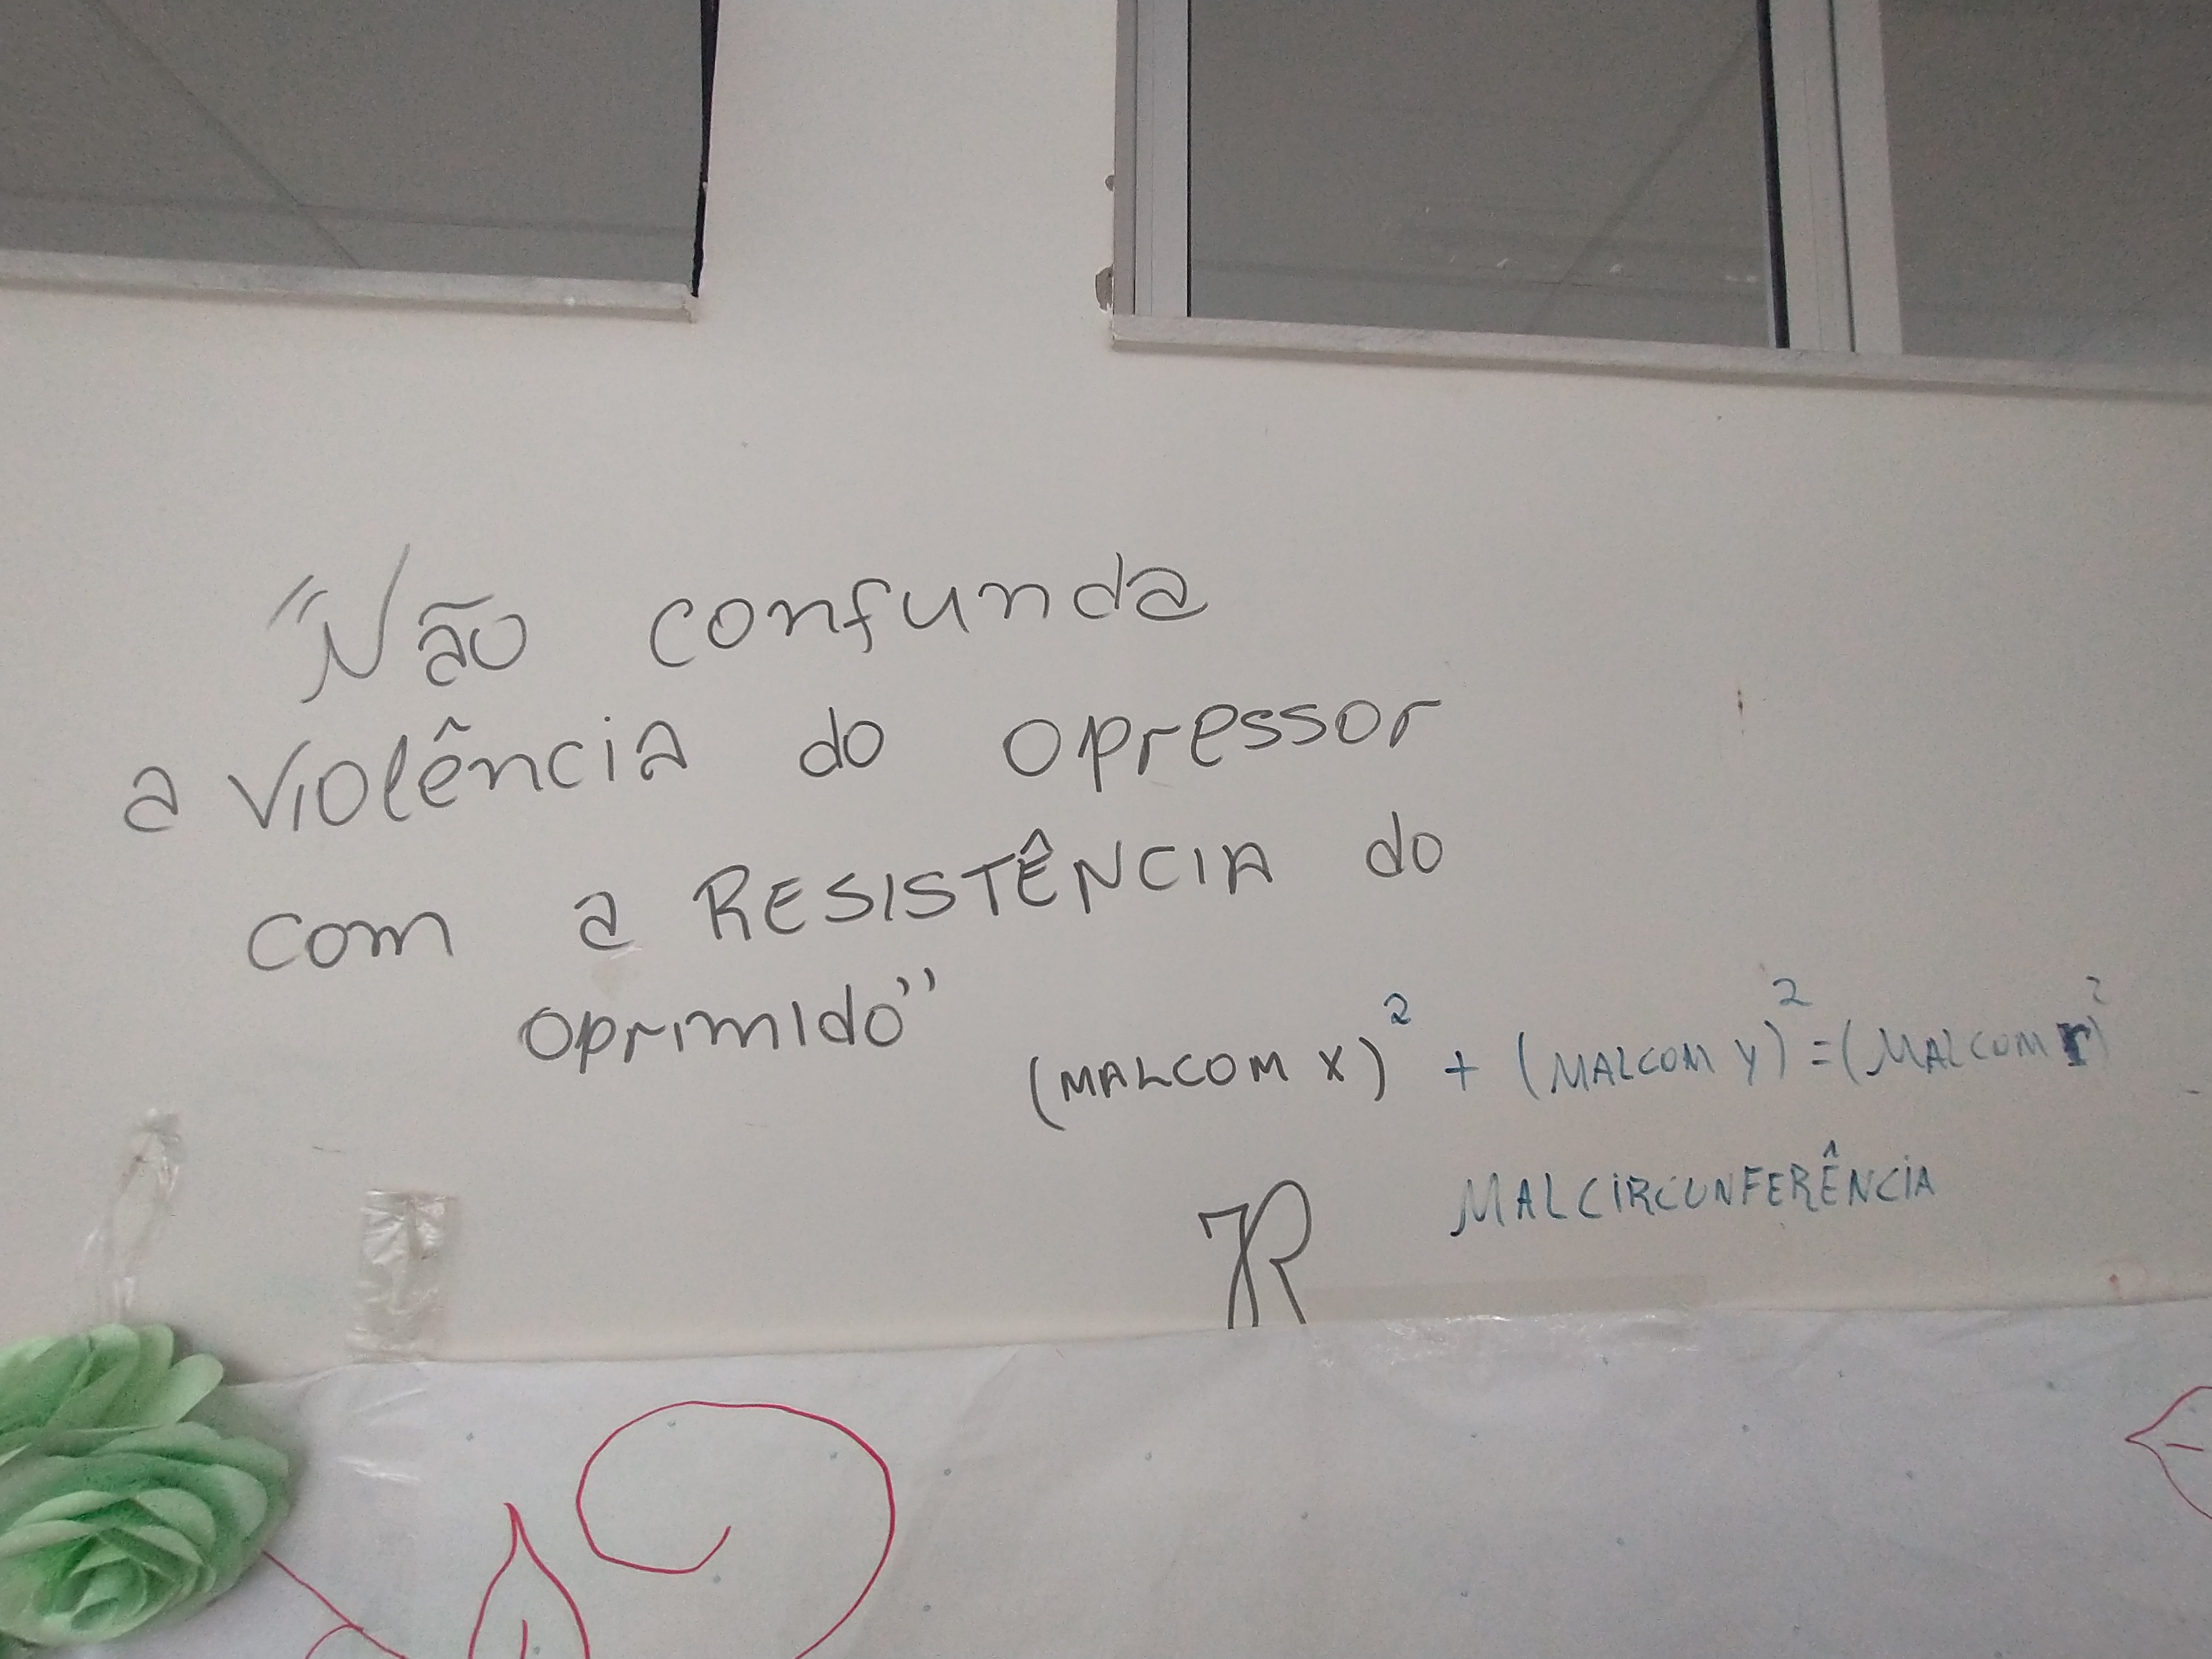 "Não confunda
a violência do opressor
com a RESISTÊNCIA do
oprimido"
(MALCOM X)² + (MALCOM Y)² = (MALCOM r)²
MALCIRCUNFERÊNCIA